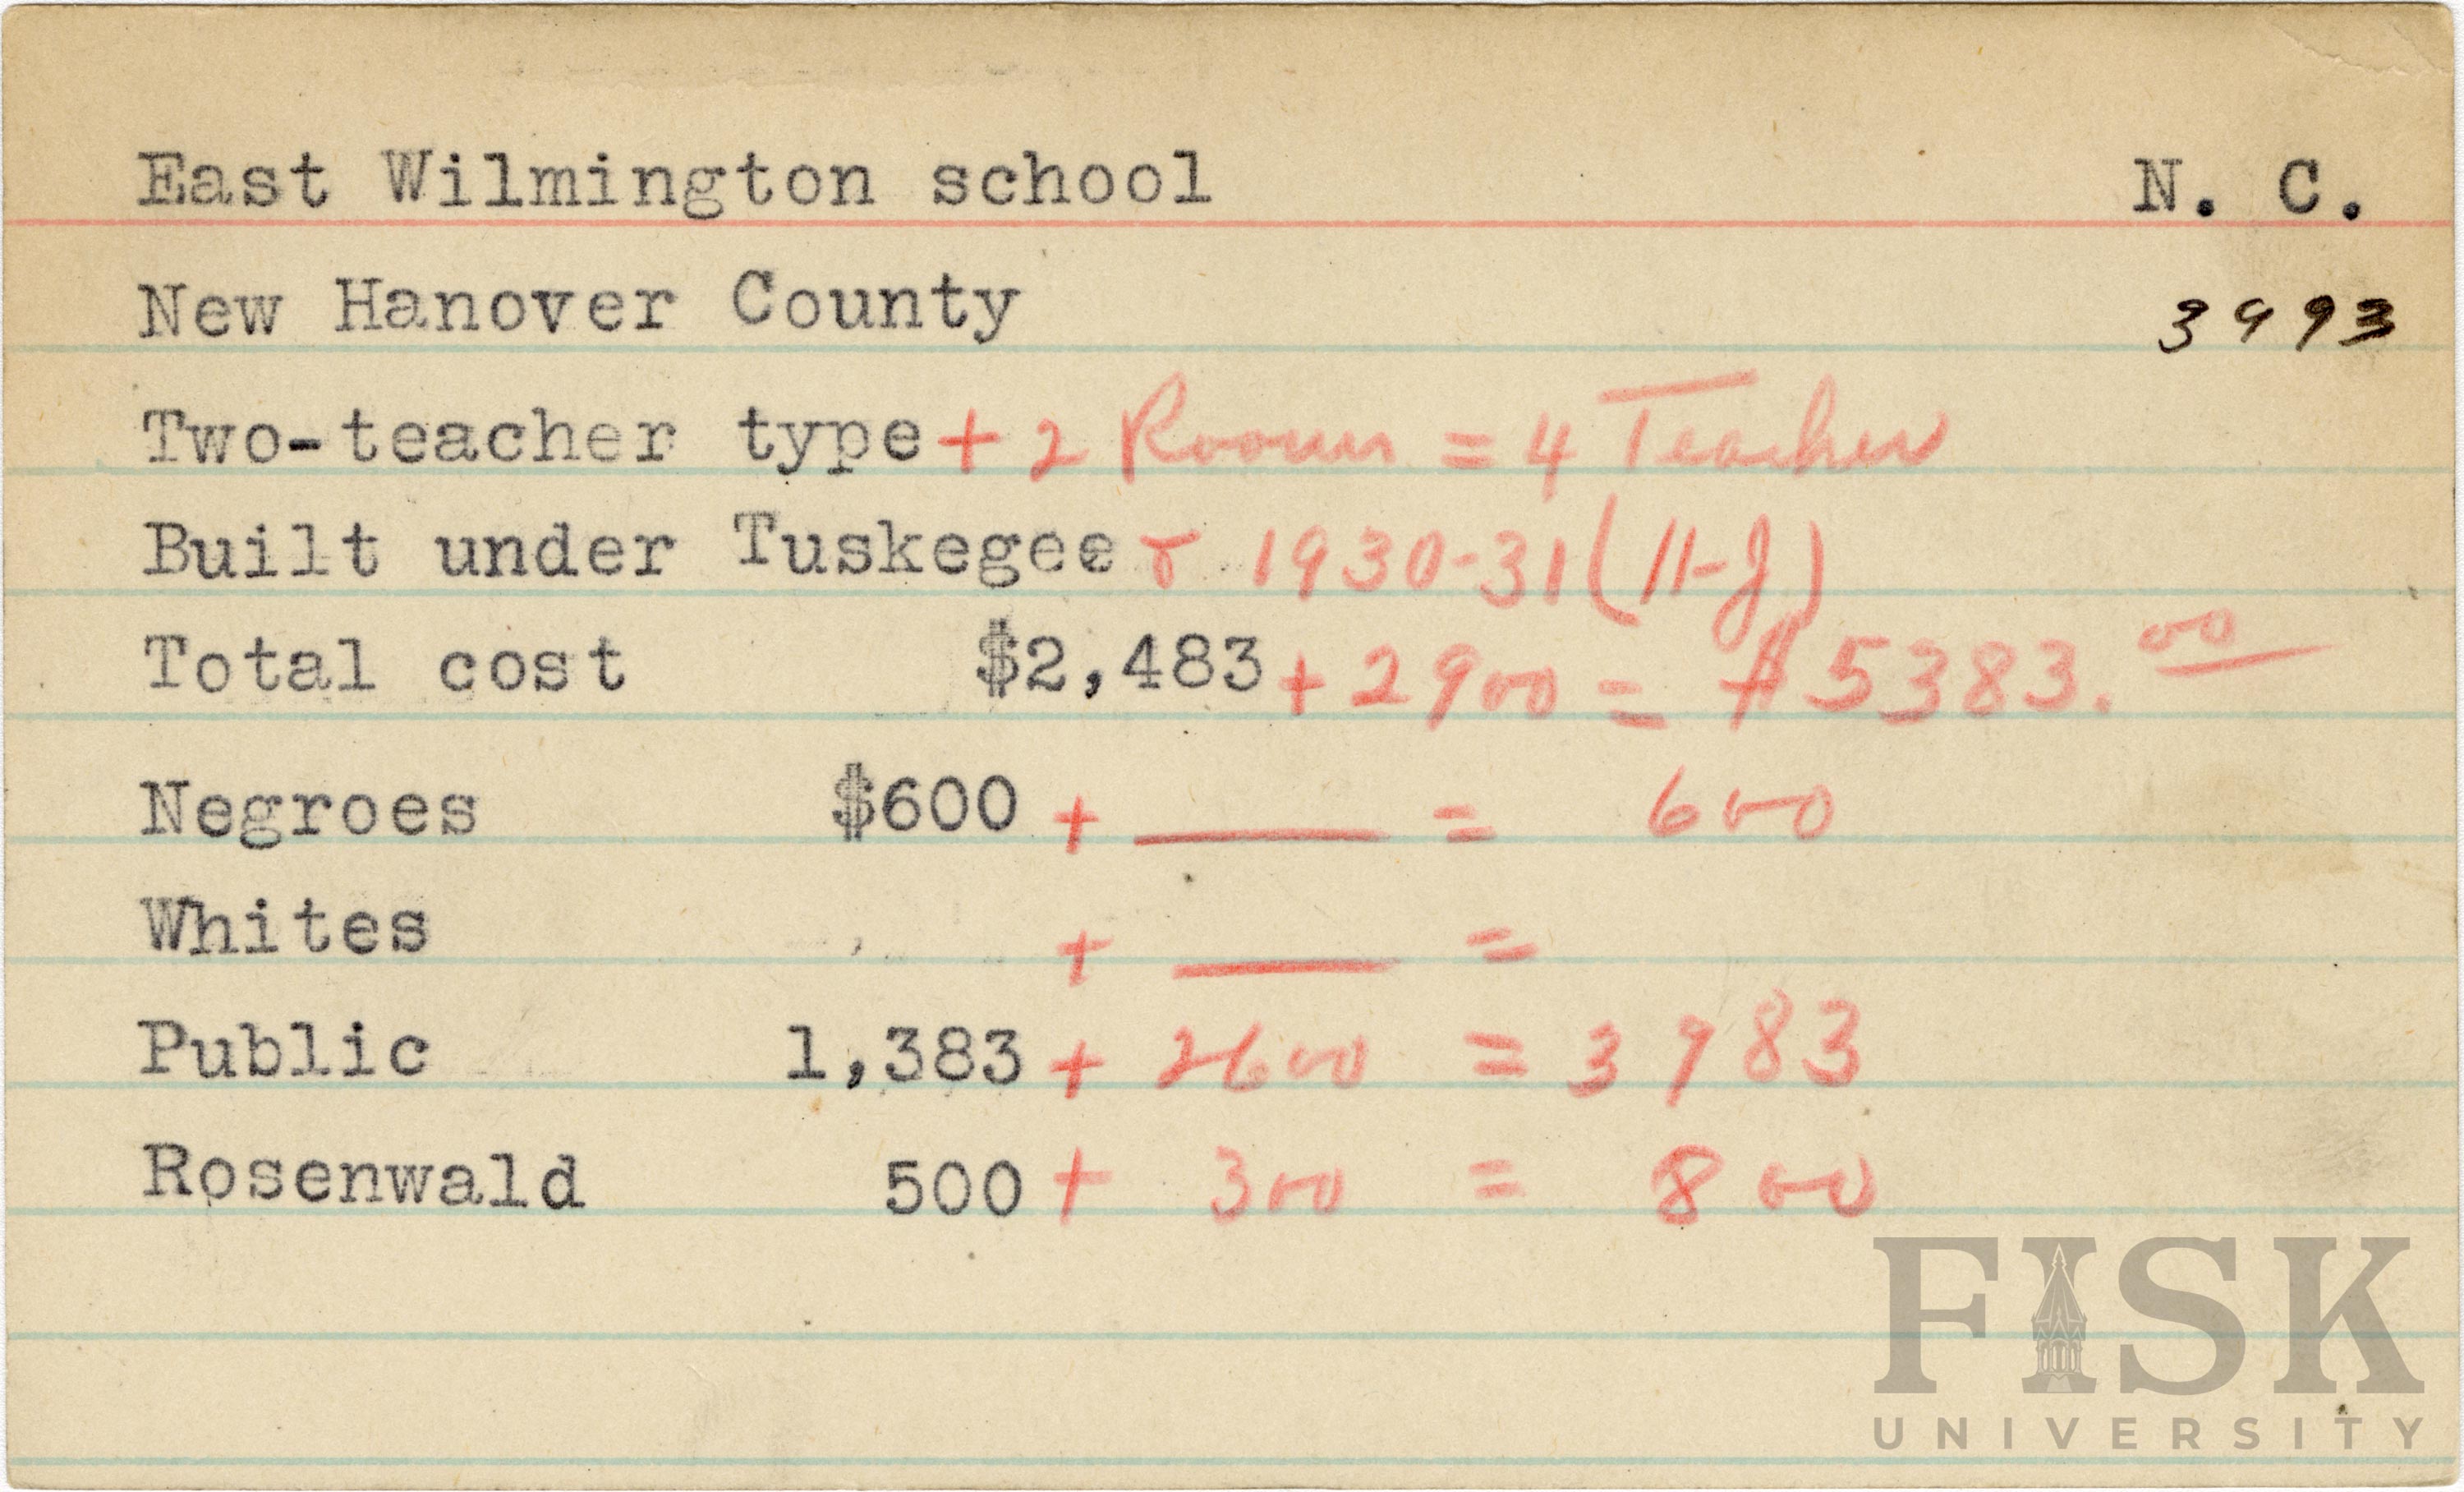 East Wilmington school N. C.
New Hanover County 3993
Two-teacher type + 2 Rooms = 4 Teacher
Built under Tuskegee & 1930-31 (11-J)
Total cost $2,483 + 2900 = $5383.00
Negroes $600 + ___ = 600
Whites + ___ =
Public 1,383 + 2600 = 3983
Rosenwald 500 + 300 = 800
FISK
UNIVERSITY